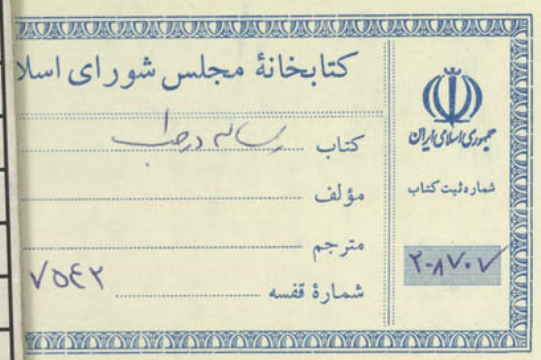 کتابخانهٔ مجلس شورای اسلا
کتاب رساله در حساب
مؤلف
مترجم
شمارهٔ قفسه ۷۵۴۲
جمهوری اسلامی ایران
شماره ثبت کتاب
۲۰۸۷۰۷